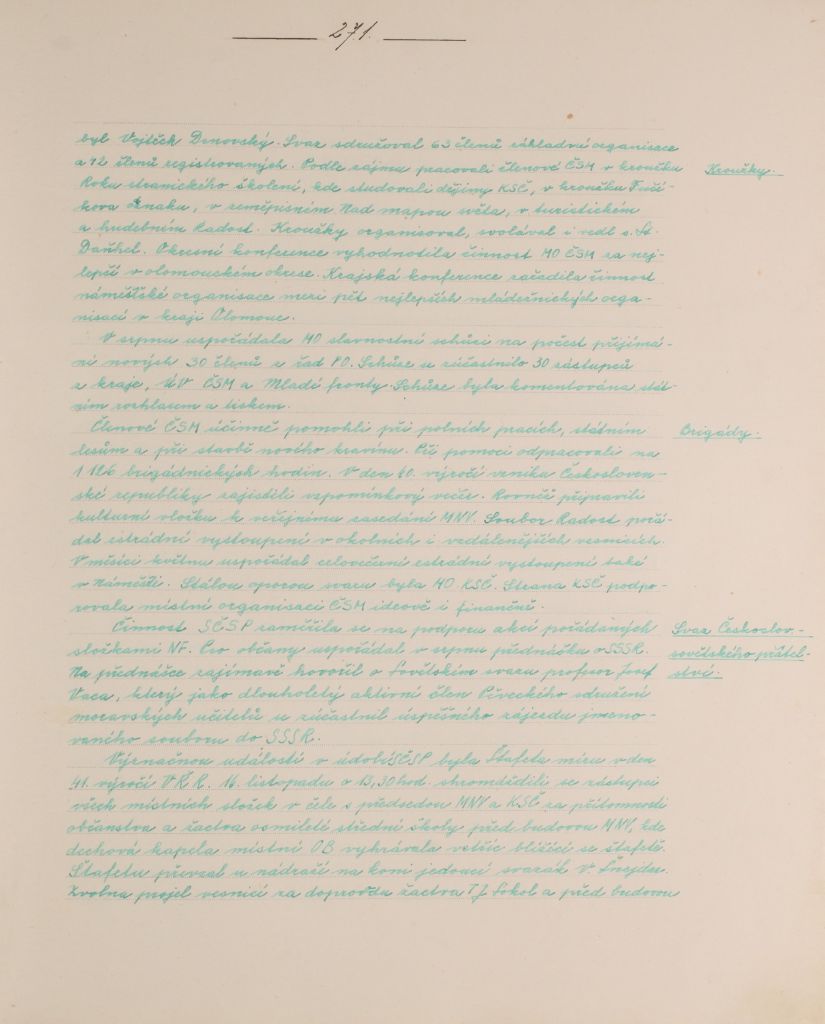 271.
byl Vojtěch Denovský. Svaz sdružoval 63 členů základní organisace
a 42 členů registrovaných. Podle zájmu pracovali členové ČSM v kroužku
Kroužky.
Roku stranického školení, kde studovali dějiny KSČ, v kroužku Fučí-
kova odznaku, v zeměpisném Nad mapou světa, v turistickém
a hudebním Radost. Kroužky organisoval, svolával i vedl s. St.
Daňhel. Okresní konference vyhodnotila činnost MO ČSM za nej-
lepší v olomouckém okrese. Krajská konference zařadila činnost
náměšťské organisace mezi pět nejlepších mládežnických orga-
nisací v kraji Olomouc.
V srpnu uspořádala MO slavnostní schůzi na počest přijímá-
ní nových 30 členů z řad PO. Schůze se zúčastnilo 30 zástupců
z kraje, ÚV ČSM a Mladé fronty. Schůze byla komentována stát-
ním rozhlasem a tiskem.
Členové ČSM účinně pomohli při polních pracích, státním
Brigády.
lesům a při stavbě nového kravínu. Při pomoci odpracovali na
1 126 brigádnických hodin. V den 40. výročí vzniku Českosloven-
ské republiky zajistili vzpomínkový večer. Rovněž připravili
kulturní vložku k veřejnému zasedání MNV. Soubor Radost pořá-
dal estrádní vystoupení v okolních i vzdálenějších vesnicích.
V měsíci květnu uspořádal celovečerní estrádní vystoupení také
v Náměšti. Stálou oporou svazu byla MO KSČ. Strana KSČ podpo-
rovala místní organisaci ČSM ideově i finančně.
Činnost SČSP zaměřila se na podporu akcí pořádaných
Svaz Českoslov.-
složkami NF. Pro občany uspořádal v srpnu přednášku o SSSR.
sovětského přátel-
Na přednášce zajímavě hovořil o Sovětském svazu profesor Josef
ství.
Vaca, který jako dlouholetý aktivní člen Pěveckého sdružení
moravských učitelů se zúčastnil úspěšného zájezdu jmeno-
vaného souboru do SSSR.
Význačnou událostí v údobí SČSP byla Štafeta míru v den
41. výročí VŘR. 16. listopadu o 13,30 hod. shromáždili se zástupci
všech místních složek v čele s předsedou MNV a KSČ za přítomnosti
občanstva a žactva osmileté střední školy před budovou MNV, kde
dechová kapela místní OB vyhrávala vstříc blížící se štafetě.
Štafetu převzal u nádraží na koni jedoucí svazák V. Šnejdr.
Zvolna projel vesnicí za doprovodu žactva TJ Sokol a před budovou